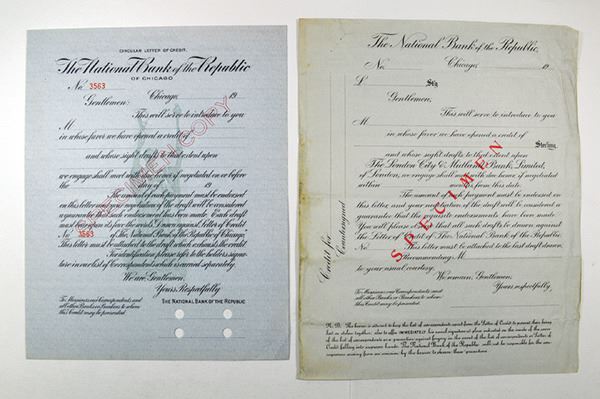 CIRCULAR LETTER OF CREDIT.
The National Bank of the Republic
OF CHICAGO
No. 3563
Chicago, 19
Gentlemen:
This will serve to introduce to you
M
in whose favor we have opened a credit of
and whose sight drafts to that extent upon
we engage shall meet with due honor if negotiated on or before
the day of 19
The amount of each payment must be endorsed
on this letter and your negotiation of the draft will be considered
a guarantee that such endorsement has been made. Each draft
must bear upon its face the words Drawn against Letter of Credit
No. 3563 of The National Bank of the Republic of Chicago.
This letter must be attached to the draft which exhausts the credit
For identification please refer to the holders signa-
ture in our list of Correspondents which is carried separately.
We are Gentlemen,
Yours, Respectfully
THE NATIONAL BANK OF THE REPUBLIC
To Messieurs our Correspondents and
all other Banks or Bankers to whom
this Credit may be presented
SPECIMEN COPY
The National Bank of the Republic,
No. Chicago, 19
£ Stg
Gentlemen,
This will serve to introduce to you
M
in whose favor we have opened a credit of
Sterling,
and whose sight drafts to that extent upon
The London City & Midland Bank, Limited,
of London, we engage shall meet with due honor if negotiated
within months from this date.
The amount of each payment must be endorsed on
this letter, and your negotiation of the draft will be considered a
guarantee that the requisite endorsements have been made.
You will please observe that all such drafts to be drawn against
the Letter of Credit of The National Bank of the Republic
No. This letter must be attached to the last draft drawn.
Recommending M
to your usual courtesy.
We remain, Gentlemen,
Yours, respectfully,
To Messieurs our Correspondents and
all other Banks or Bankers to whom
this Credit may be presented
Credit for
Countersigned
SPECIMEN
N.B. The bearer is advised to keep the list of correspondents apart from the Letter of Credit to prevent their being
lost or stolen together, also to affix IMMEDIATELY his usual signature at place indicated on the inside of the cover
of the list of correspondents as a precaution against forgery in the event of the list of correspondents or Letter of
Credit falling into improper hands. The National Bank of the Republic will not be responsible for the con-
sequences arising from an omission by the bearer to observe these precautions